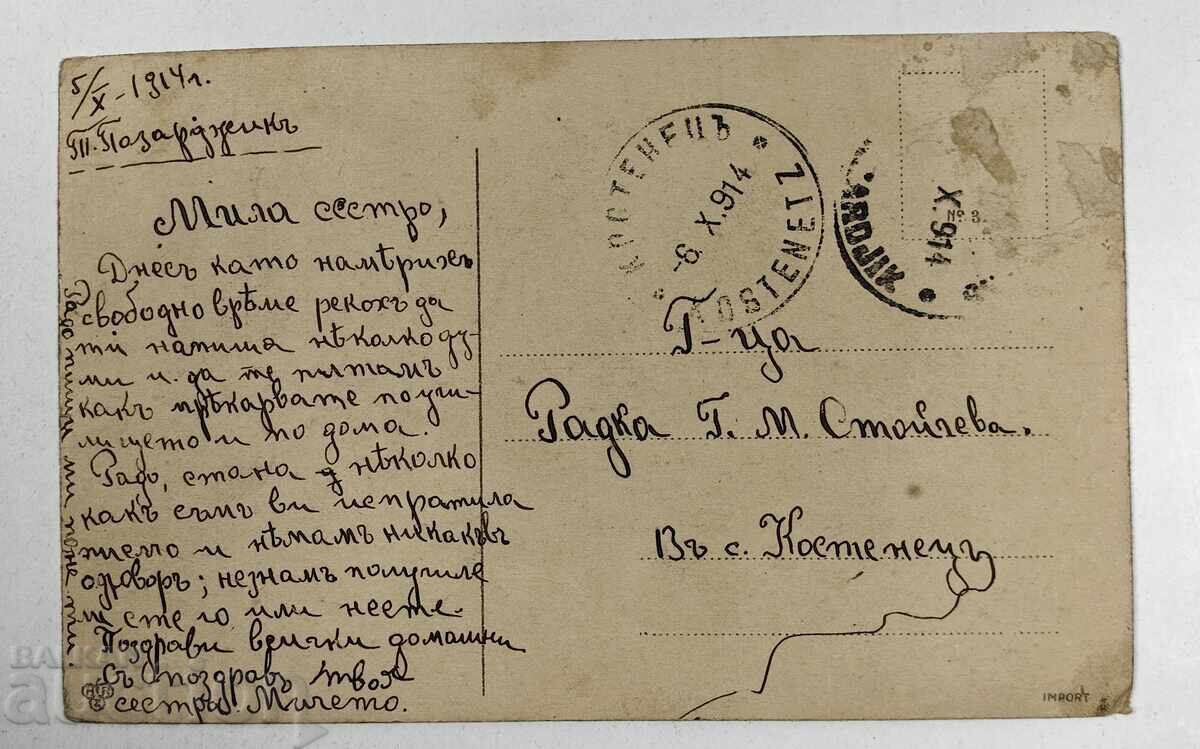 5/X-1914 г.
Т. Пазарджикъ
Мила сестро,
Днесъ като намѣрихъ
свободно врѣме рекохъ да
ти напиша нѣколко ду-
ми и да те питамъ
какъ прѣкарвате по учи-
лището и по дома.
Радо, стана нѣколко
какъ съмъ ви испратила
писмо и нѣмамъ никакъвъ
одговоръ; незнамъ получиле
ли сте го или несте.
Поздрави всички домашни
Съ поздравъ твоя
сестра Мичето.
КОСТЕНЕЦЪ
-6. X.914
KOSTENETZ
ARDJIK
X.914
№ 3.
Г-ца
Радка Г. М. Стойчева.
Въ с. Костенецъ
IMPORT